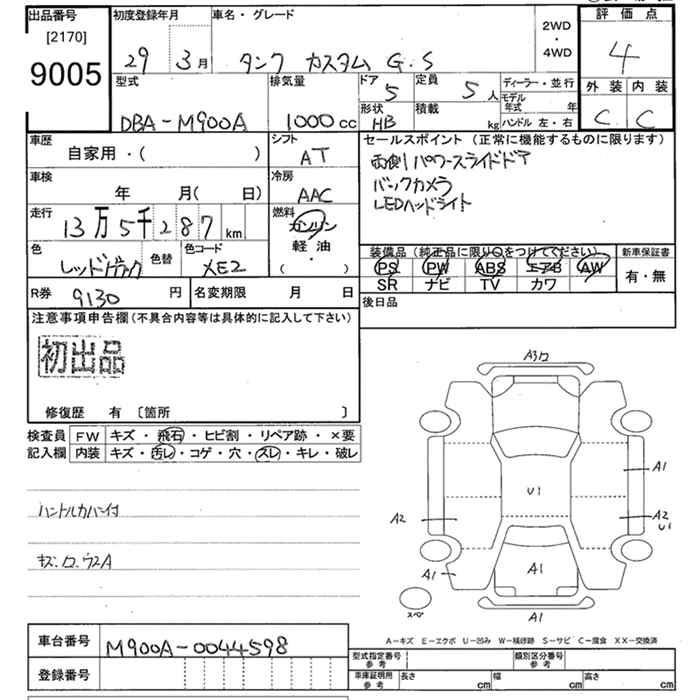 出品番号
[2170]
9005
初度登録年月
29 3月
車名・グレード
タンク カスタム G.S
2WD
・
4WD
評価点
4
外装 内装
C C
型式
DBA-M900A
排気量
1000cc
ドア
5
定員
5人
形状
HB
積載
kg
ディーラー・並行
モデル
年式 年
ハンドル 左・右
車歴
自家用・( )
シフト
AT
車検
年 月( 日)
冷房
AAC
走行
13万5千287km
燃料
ガソリン
軽油
( )
色
レッド
色替
色コード
XE2
R券
9130円
名変期限 月 日
セールスポイント (正常に機能するものに限ります)
両側パワースライドドア
バックカメラ
LEDヘッドライト
装備品(純正品に限り○をつけてください)
PS PW ABS エアB AW
SR ナビ TV カワ
新車保証書
有・無
後日品
注意事項申告欄(不具合内容等は具体的に記入して下さい)
初出品
修復歴 有 〔箇所 〕
検査員
記入欄
FW キズ・飛石・ヒビ割・リペア跡・×要
内装 キズ・汚レ・コゲ・穴・スレ・キレ・破レ
ハンドルカバー付
キズ.ロ.ウスA
A3ロ
A1
U1
A2
A2
U1
A1
A1
スペア
A1
A-キズ E-エクボ U-凹み W-補修跡 S-サビ C-腐食 XX-交換済
車台番号
M900A-0044598
登録番号
型式指定番号
参考
類別区分番号
参考
車庫証明用
参考
長さ cm
幅 cm
高さ cm